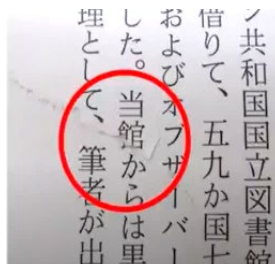 ン共和国国立図書館
借りて、五九か国七
およびオブザーバー
した。当館からは里
理として、筆者が出